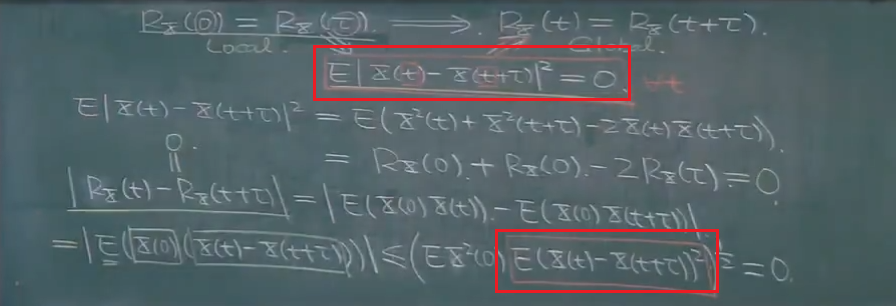 R_X(0) = R_X(τ). ⟹. R_X(t) = R_X(t+τ).
Local. Global.
E|X(t)-X(t+τ)|²=0. ∀t
E|X(t)-X(t+τ)|² = E(X²(t)+X²(t+τ)-2X(t)X(t+τ)).
= R_X(0).+R_X(0).-2R_X(τ).=0
0.
||
|R_X(t)-R_X(t+τ)| = |E(X(0)X(t)).-E(X(0)X(t+τ))|
=|E(X(0)(X(t)-X(t+τ)))| ≤ (EX²(0) E(X(t)-X(t+τ))²)^½ =0.